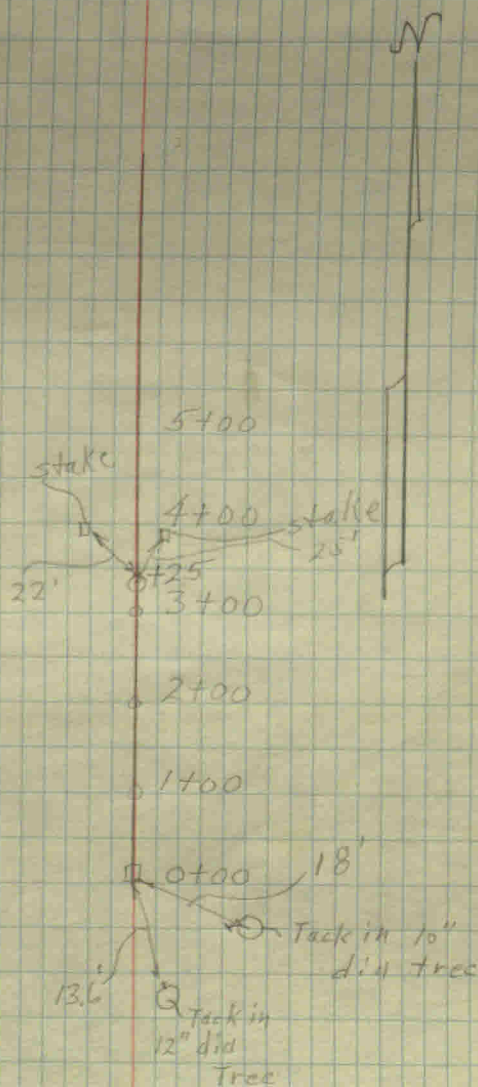 N
5+00
stake
4+00
stake
25'
22'
+25
3+00
2+00
1+00
0+00
18'
Tack in 10"
dia tree
13.6'
Tack in
12" dia
Tree